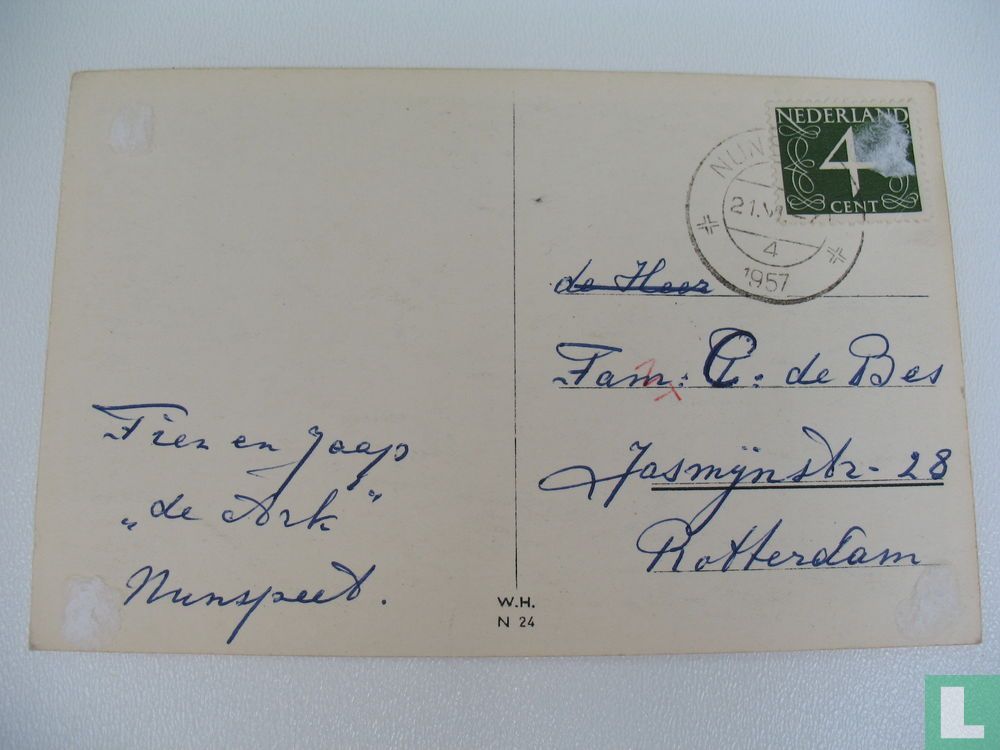 Fien en Jaap
„de Ark"
Nunspeet.
W.H.
N 24
NEDERLAND
4
CENT
21.VI
4
1957
de Heer
Fam. C. de Bes
Jasmijnstr- 28
Rotterdam
L